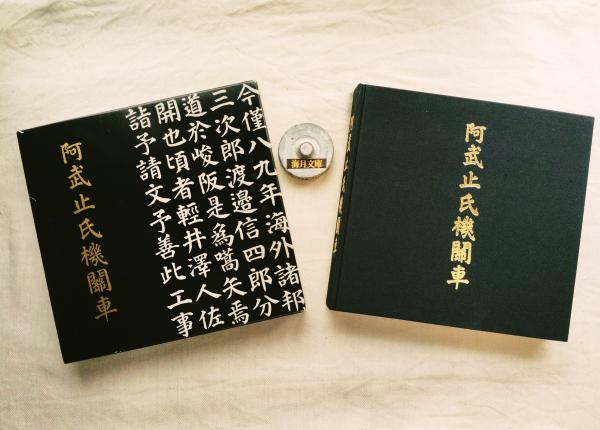 今僅八九年海外諸邦
三次郎渡邊信四郎分
道於峻阪是爲嚆矢焉
開也頃者輕井澤人佐
詣予請文予善此工事
阿武止氏機關車
海月文庫
阿武止氏機關車
阿武止氏機關車